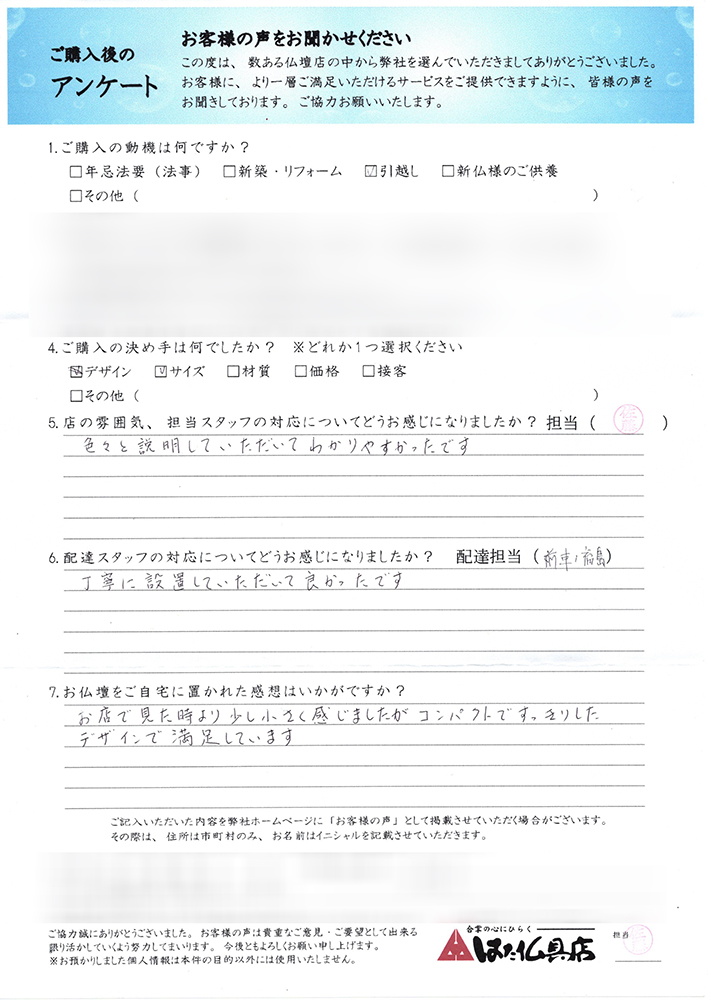 ご購入後の
アンケート
お客様の声をお聞かせください
この度は、数ある仏壇店の中から弊社を選んでいただきましてありがとうございました。
お客様に、より一層ご満足いただけるサービスをご提供できますように、皆様の声を
お聞きしております。ご協力お願いいたします。
1.ご購入の動機は何ですか？
□年忌法要（法事） □新築・リフォーム ☑引越し □新仏様のご供養
□その他（ ）
4.ご購入の決め手は何でしたか？ ※どれか1つ選択ください
☑デザイン ☑サイズ □材質 □価格 □接客
□その他（ ）
5.店の雰囲気、担当スタッフの対応についてどうお感じになりましたか？ 担当（ ）
色々と説明していただいてわかりやすかったです
6.配達スタッフの対応についてどうお感じになりましたか？ 配達担当（ 福島）
丁寧に設置していただいて良かったです
7.お仏壇をご自宅に置かれた感想はいかがですか？
お店で見た時より少し小さく感じましたがコンパクトですっきりした
デザインで満足しています
ご記入いただいた内容を弊社ホームページに「お客様の声」として掲載させていただく場合がございます。
その際は、住所は市町村のみ、お名前はイニシャルを記載させていただきます。
ご協力誠にありがとうございました。お客様の声は貴重なご意見・ご要望として出来る
限り活かしていくよう努力してまいります。今後ともよろしくお願い申し上げます。
※お預かりしました個人情報は本件の目的以外には使用いたしません。
合掌の心にひらく
はた仏具店
担当